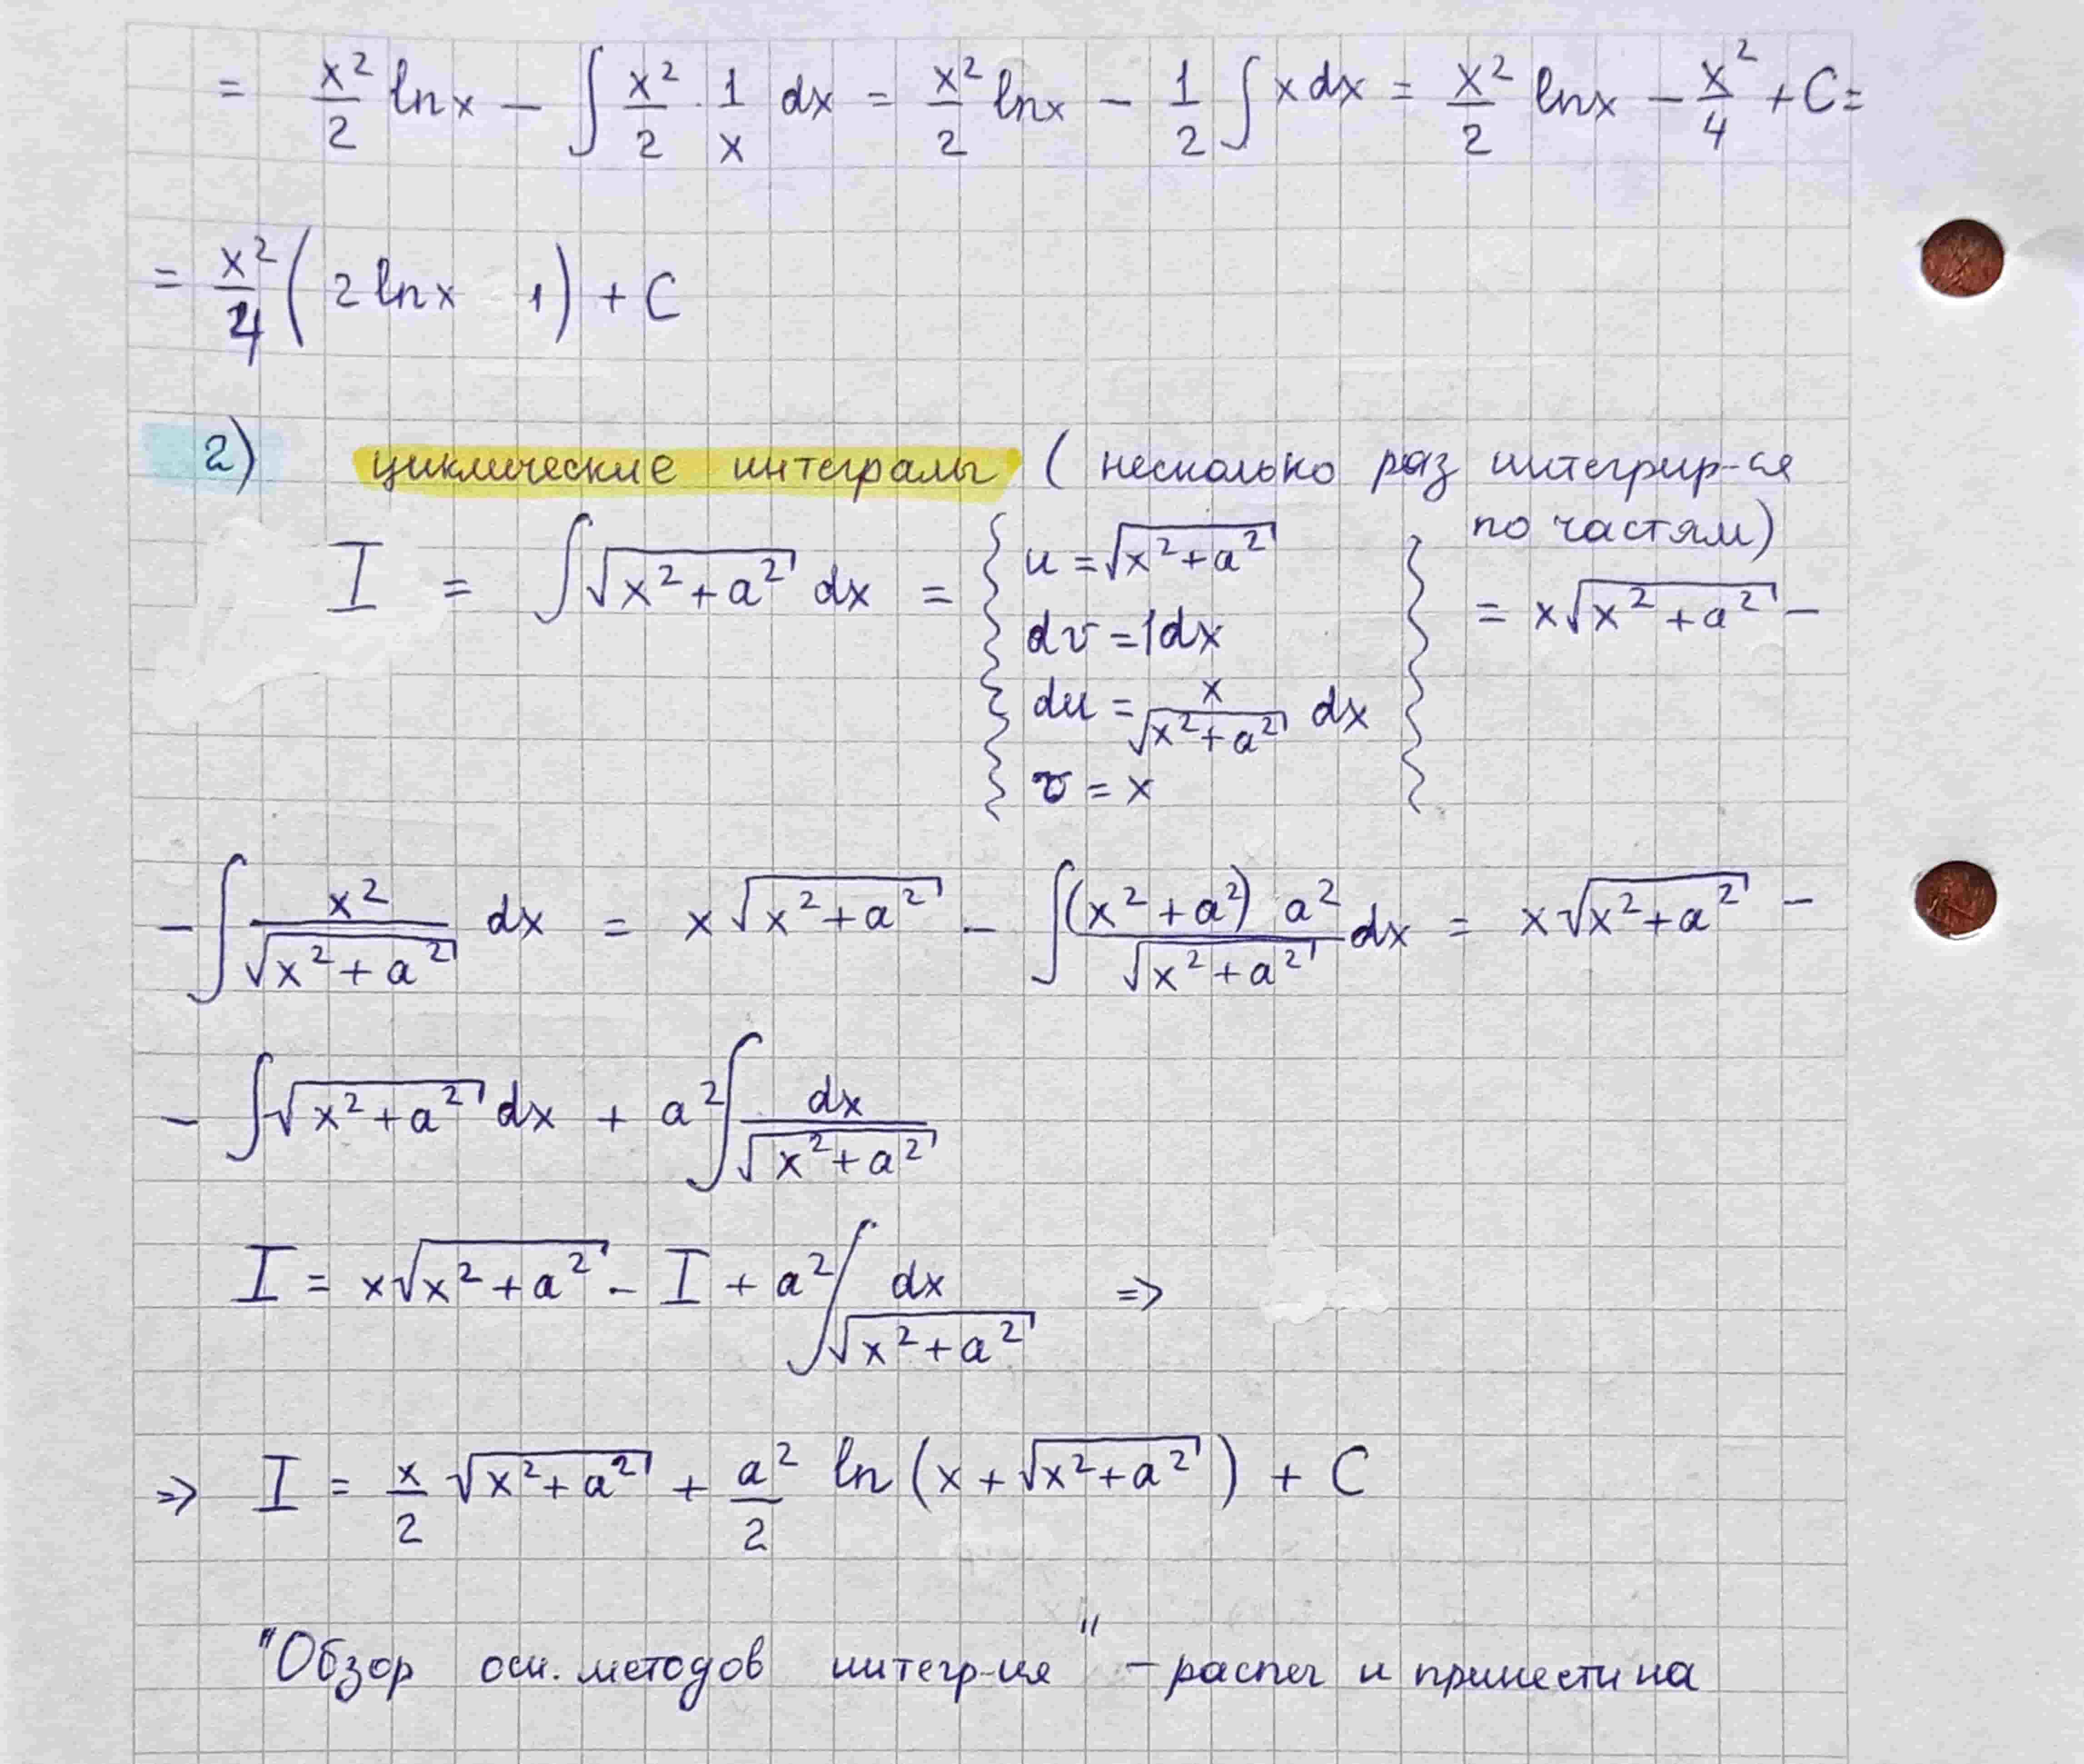 = x²/2 lnx − ∫ x²/2 · 1/x dx = x²/2 lnx − 1/2 ∫ x dx = x²/2 lnx − x²/4 + C =
= x²/4 ( 2 lnx 1) + C
2) циклические интегралы ( несколько раз интегрир-ся
по частям)
I = ∫ √(x²+a²) dx = { u = √(x²+a²) dv = 1dx du = x/√(x²+a²) dx v = x } = x√(x²+a²) −
− ∫ x²/√(x²+a²) dx = x √(x²+a²) − ∫ ((x²+a²) a²)/√(x²+a²) dx = x√(x²+a²) −
− ∫ √(x²+a²) dx + a² ∫ dx/√(x²+a²)
I = x√(x²+a²) − I + a² ∫ dx/√(x²+a²) ⇒
⇒ I = x/2 √(x²+a²) + a²/2 ln (x + √(x²+a²)) + C
"Обзор осн. методов интегр-ия" – распеч и принести на